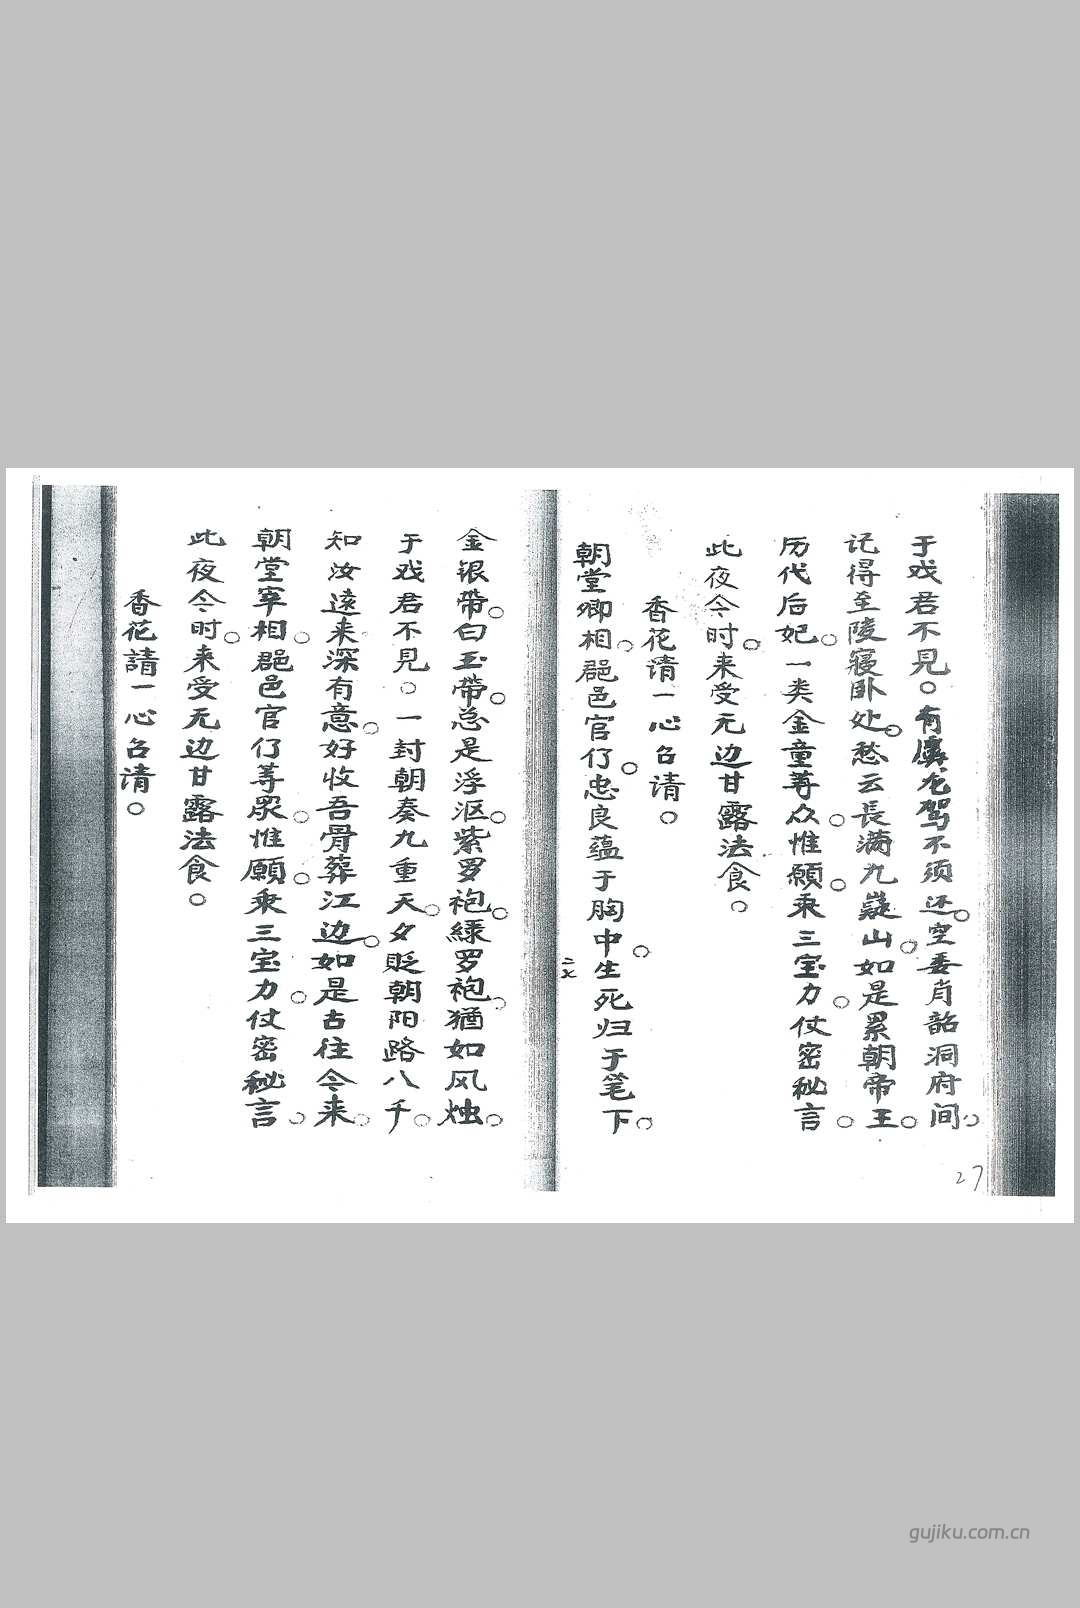 于戏君不見。有虞龙驾不须还。空委肖韶洞府间。
记得至陵寝卧处。愁云長满九嶷山。如是累朝帝王。
历代后妃。一类金童等众。惟願。乘三宝力。仗密秘言。
此夜今时。来受无边甘露法食。
香花请一心召请。
朝堂卿相。郡邑官仃。忠良蕴于胸中。生死归于笔下。
二七
金银帶。白玉帶。总是浮沤。紫罗袍。綠罗袍。猶如风烛。
于戏君不見。一封朝奏九重天。夕貶朝阳路八千。
知汝遠来深有意。好收吾骨葬江边。如是古往今来。
朝堂宰相。郡邑官仃等眾。惟願。乘三宝力。仗密秘言。
此夜今时。来受无边甘露法食。
香花請一心召请。
27
gujiku.com.cn